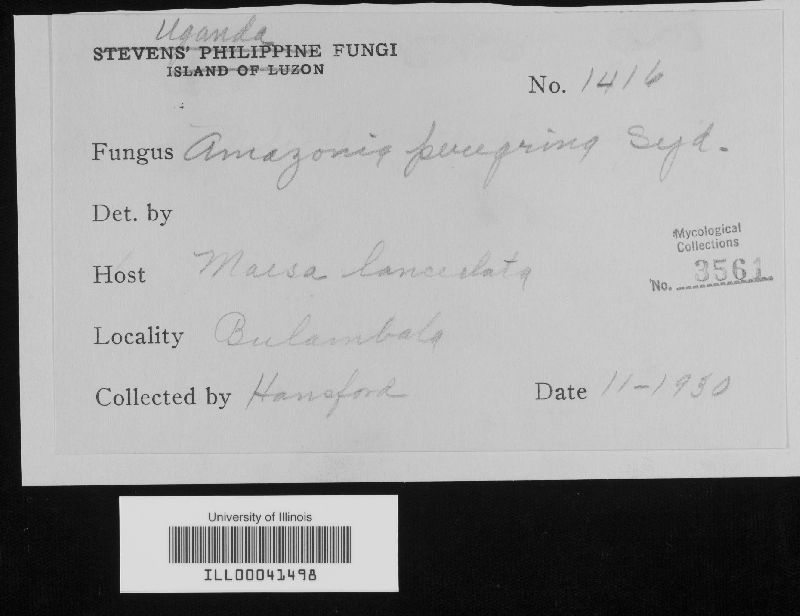 Uganda
STEVENS' PHILIPPINE FUNGI
ISLAND OF LUZON
No. 1416
Fungus Amazonia peregrina Syd.
Det. by
Mycological
Collections
No. 3561
Host Maesa lanceolata
Locality Bulambala
Collected by Hansford
Date 11-1930
University of Illinois
ILL00041498